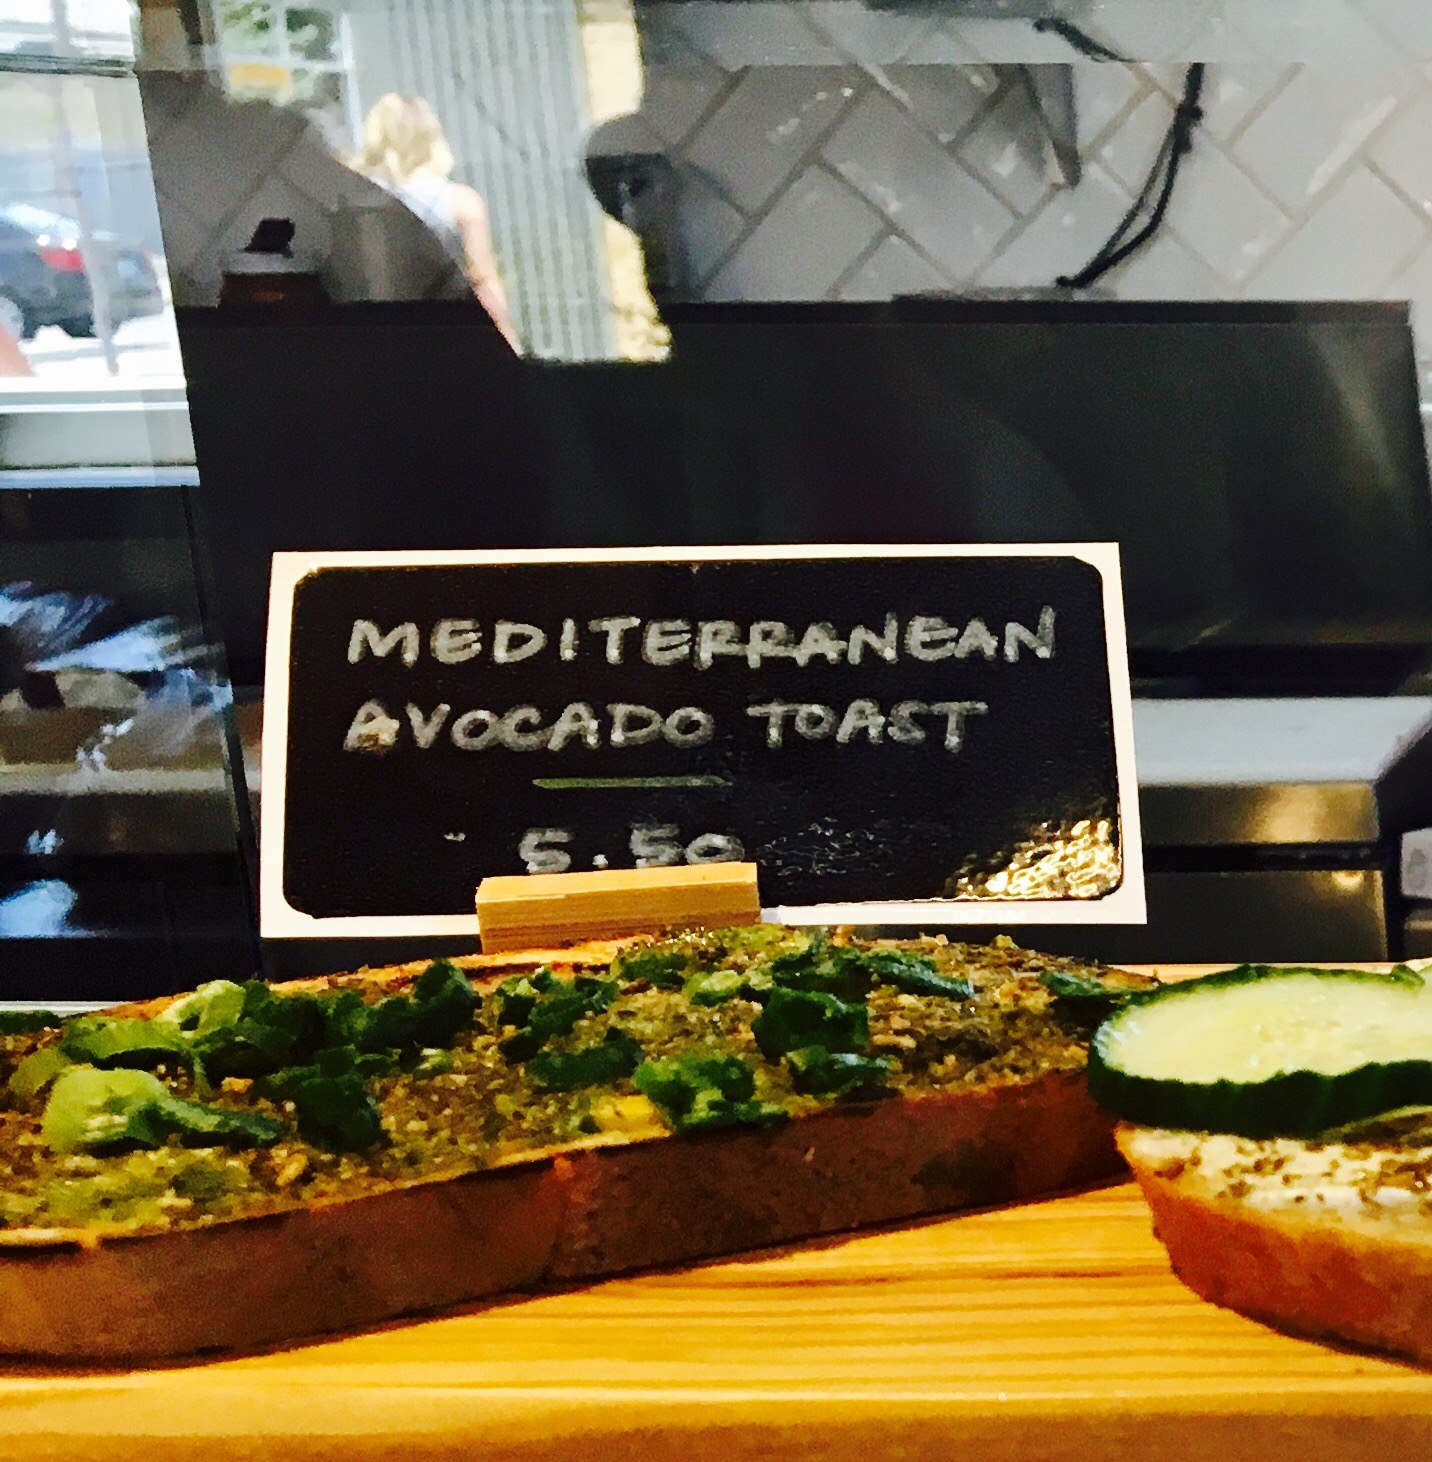 MEDITERRANEAN
AVOCADO TOAST
5.50